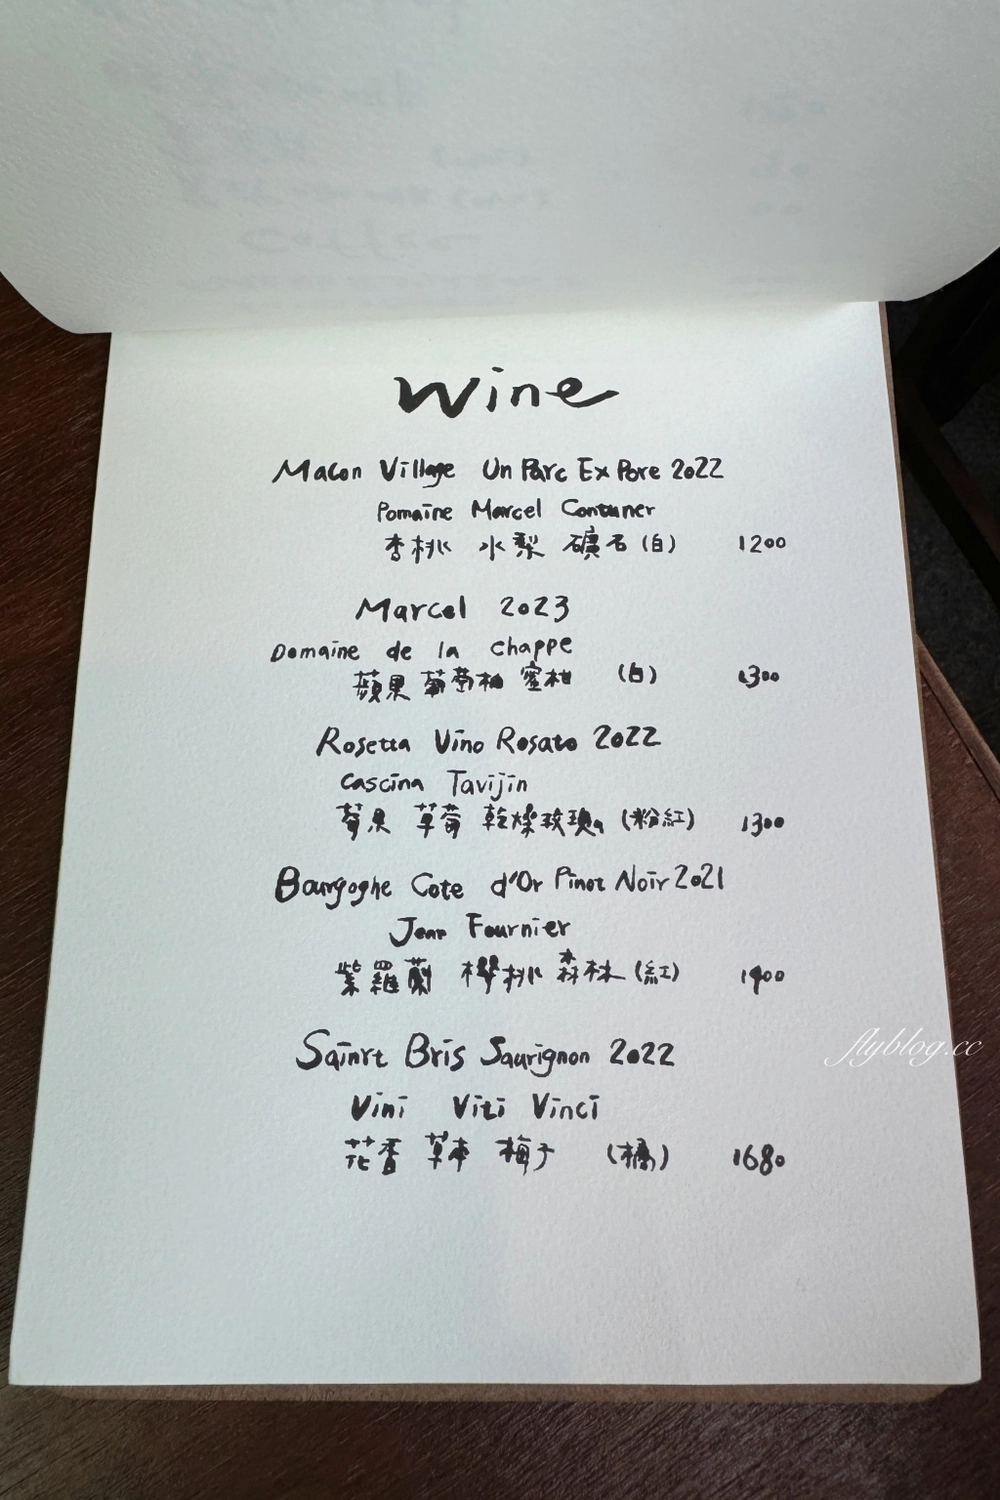 Wine
Macon Village Un Parc Ex Pore 2022
Pomaine Marcel Contuner
香桃 水梨 礦石 (白) 1200
Marcel 2023
Domaine de la chappe
蘋果 葡萄柚 蜜柑 (白) 1300
Rosetta Vino Rosato 2022
Cascina Tavijin
莓果 草莓 乾燥玫瑰 (粉紅) 1300
Bourgoghe Cote d'Or Pinot Noir 2021
Jean Fournier
紫羅蘭 櫻桃 森林 (紅) 1900
Sainrt Bris Saurignon 2022
Vini Viti Vinci
花香 草本 梅子 (橘) 1680
flyblog.cc